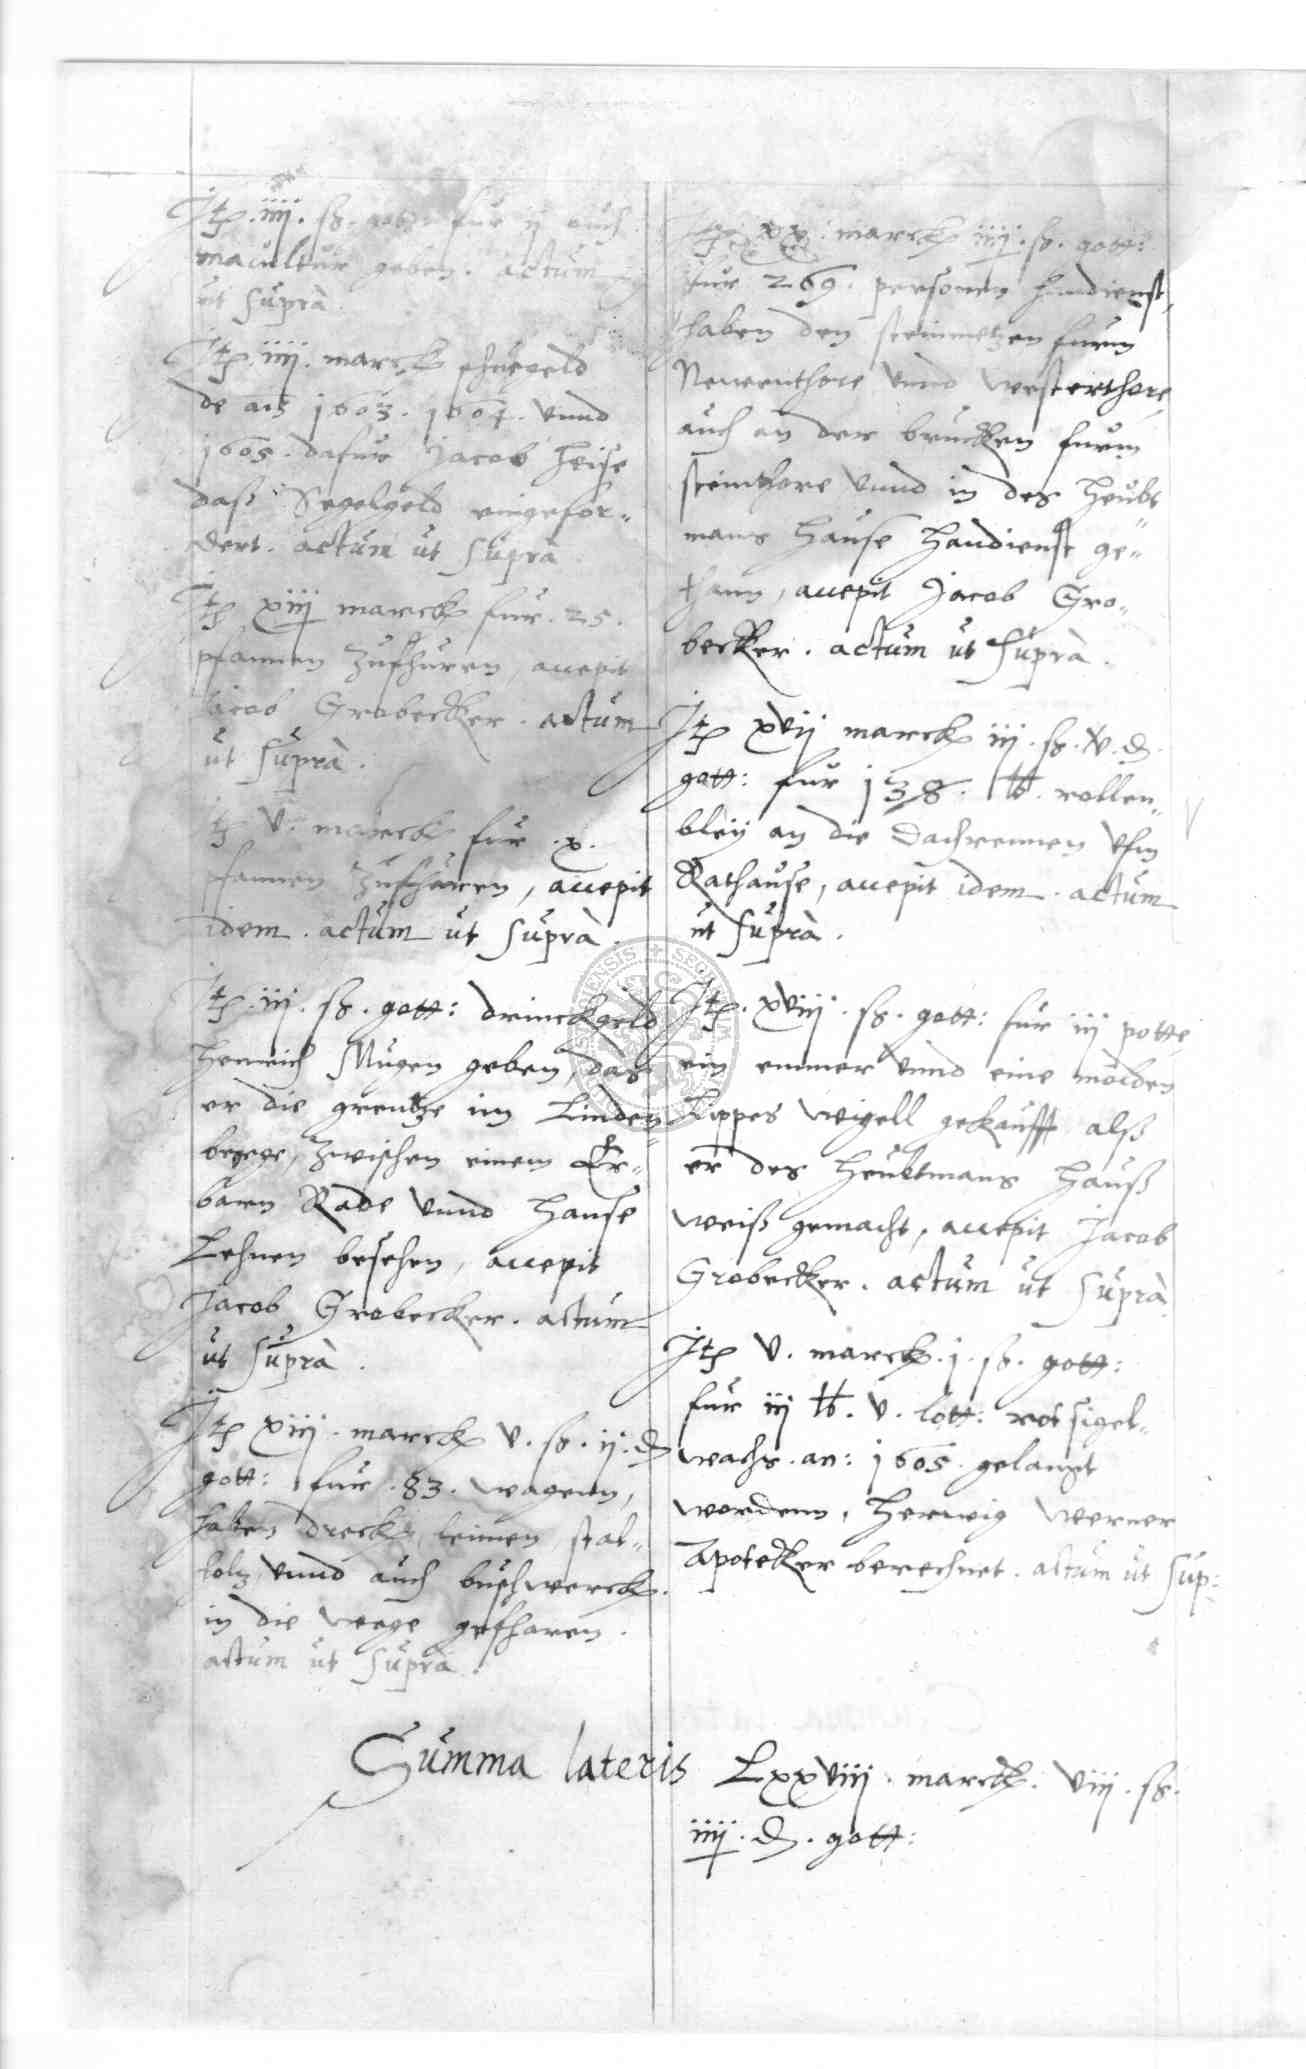 Itē. iiij. ß. gott: fur ij buch
maculatur geben. actum
ut suprà.
Itē. iiij. marck schuegeld
de aō 1603. 1604. vnnd
1605. dafur Jacob Heise
daß Segelgeld eingefor-
dert. actum ut suprà.
Itē xiij marck fur. 25.
pfannen zufhuren, accepit
Jacob Grobecker. actum
ut suprà.
Itē v. marck fur .x.
pfannen zufhuren, accepit
idem. actum ut suprà.
Itē. iij. ß. gott: drinckgeld
Henrich Mugen geben, das
er die grentze im Linden-
berge, zwischen einem Er-
barn Rade vnnd Hanse
Lehnen besehen, accepit
Jacob Grobecker. actum
ut suprà.
Itē xiij. marck v. ß. ij. ₰
gott: fur. 83. wagenn,
haben dreck, leimen, stal-
holtz vnnd auch buschwerck
in die wege gefharen.
actum ut suprà.
Itē xx. marck iiij. ß. gott:
fur 269. personen handienst,
haben den steinmetzen furm
Newenthore vnnd westerthore
auch an der brucken furm
steinthore vnnd in des Heubt-
mans Hause Handienst ge-
thann, accepit Jacob Gro-
becker. actum ut suprà.
Itē xvij marck iij. ß. v. ₰
gott: fur 138. ℔. rollen-
bley an die Dachrennen vfm
Rathause, accepit idem. actum
ut suprà.
Itē. xviij. ß. gott: fur iij potte
ein emmer vnnd eine molden
Lippes Wigell gekaufft alß
er des Heubtmans Hauß
weiß gemacht, accepit Jacob
Grobecker. actum ut suprà.
Itē v. marck. j. ß. gott:
fur iij ℔. v. lott: rot sigel-
wachs. an: 1605. gelangt
wordenn, Herwig Werner
Apotekker berechnet. actum ut sup:
Summa lateris Lxxviij. marck. viij. ß.
iiij. ₰. gott: